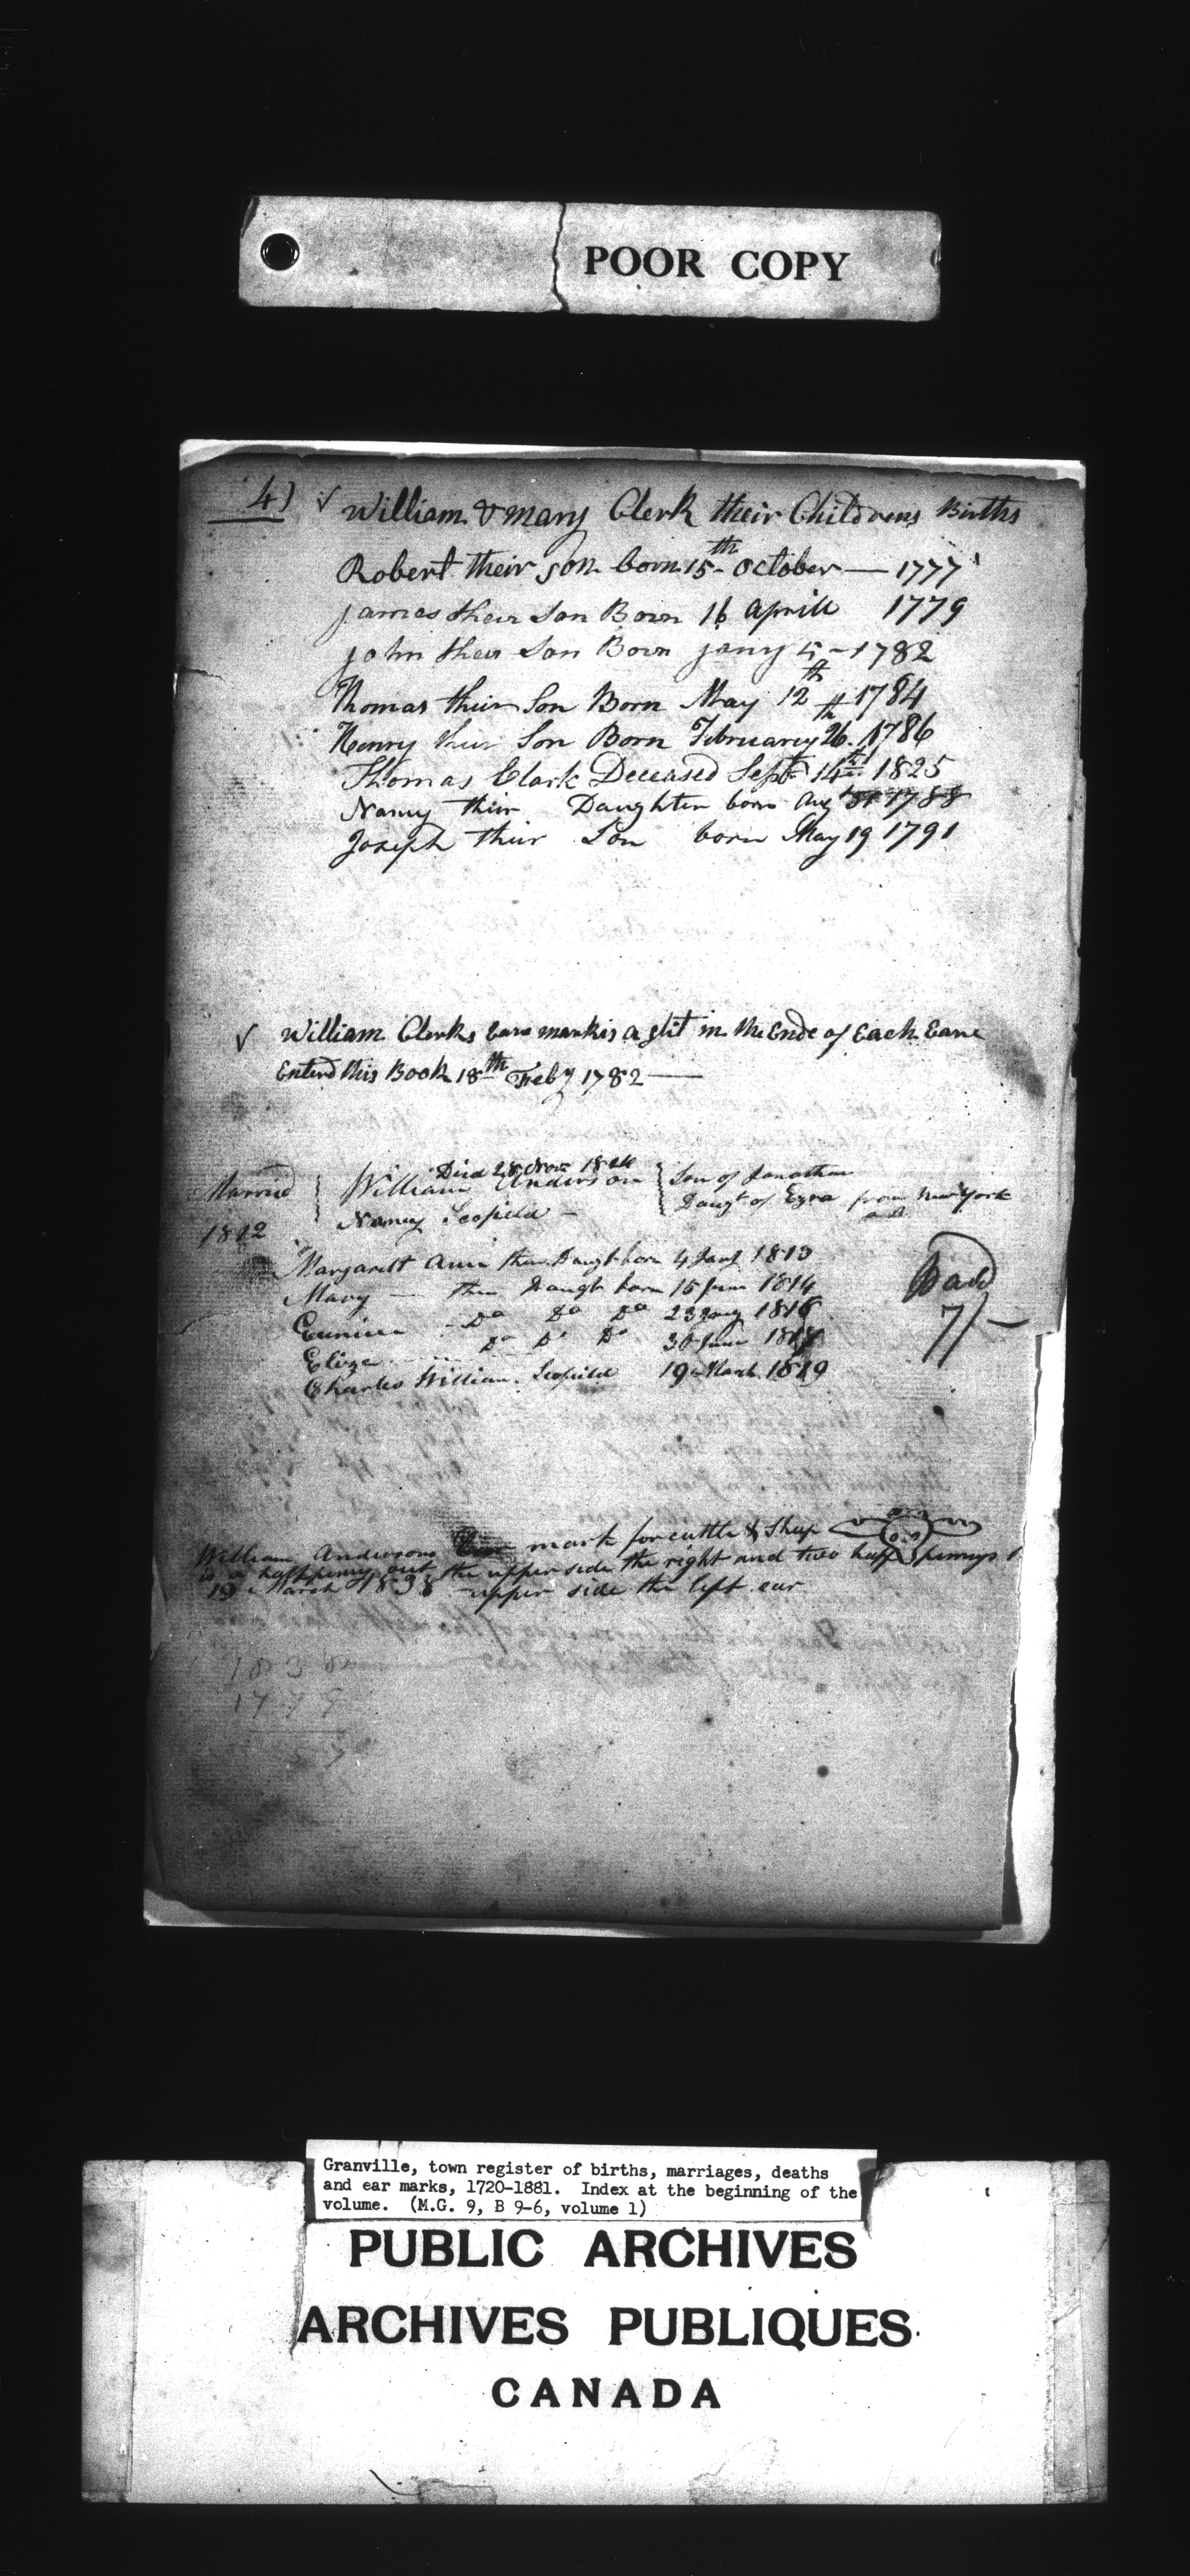 POOR COPY
4)
William & Mary Clerk their Childrens Births
Robert their son born 15th October — 1777
James their Son Born 16 Aprill 1779
John their Son Born Jany 5 - 1782
Thomas their Son Born May 12th 1784
Henry their Son Born Februarey 26th 1786
Thomas Clark Deceased Sept 14th 1825
Nancy their Daughter born Aug 31 1788
Joseph their Son born May 19 1791
William Clerks Eare mark is a slit in the Ende of Each Eare
Enterd this Book 18th Feby 1782 —
Died 28 Nov 1824
Married William Anderson Son of Jonathan
1812 Nancy Scofield - Daugt of Ezra from New York
Margarett Ann their Daugt born 4 Jany 1813
Mary — their Daugt born 15 June 1814
Eunice - Do Do Do 23 Jany 1816
Eliza Do Do Do 30 June 1817
Charles William Scofield 19 March 1819
Paid
7/-
William Andersons mark for cattle & Sheep
is a halfpenny out the upper side the right and two half pennys
19 March 1838 upper side the left ear
1838
1779
Granville, town register of births, marriages, deaths
and ear marks, 1720-1881. Index at the beginning of the
volume. (M.G. 9, B 9-6, volume 1)
PUBLIC ARCHIVES
ARCHIVES PUBLIQUES
CANADA